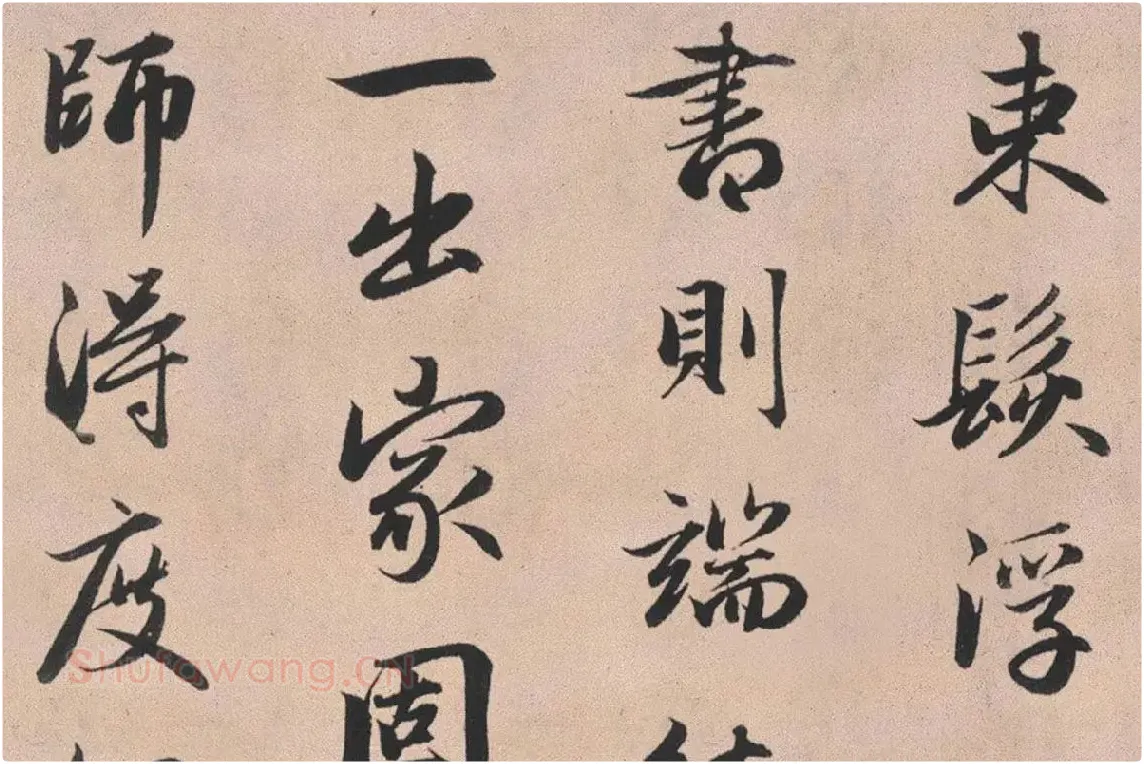 束髮浮
書則端
一出家固
師得度
Shufawang.CN